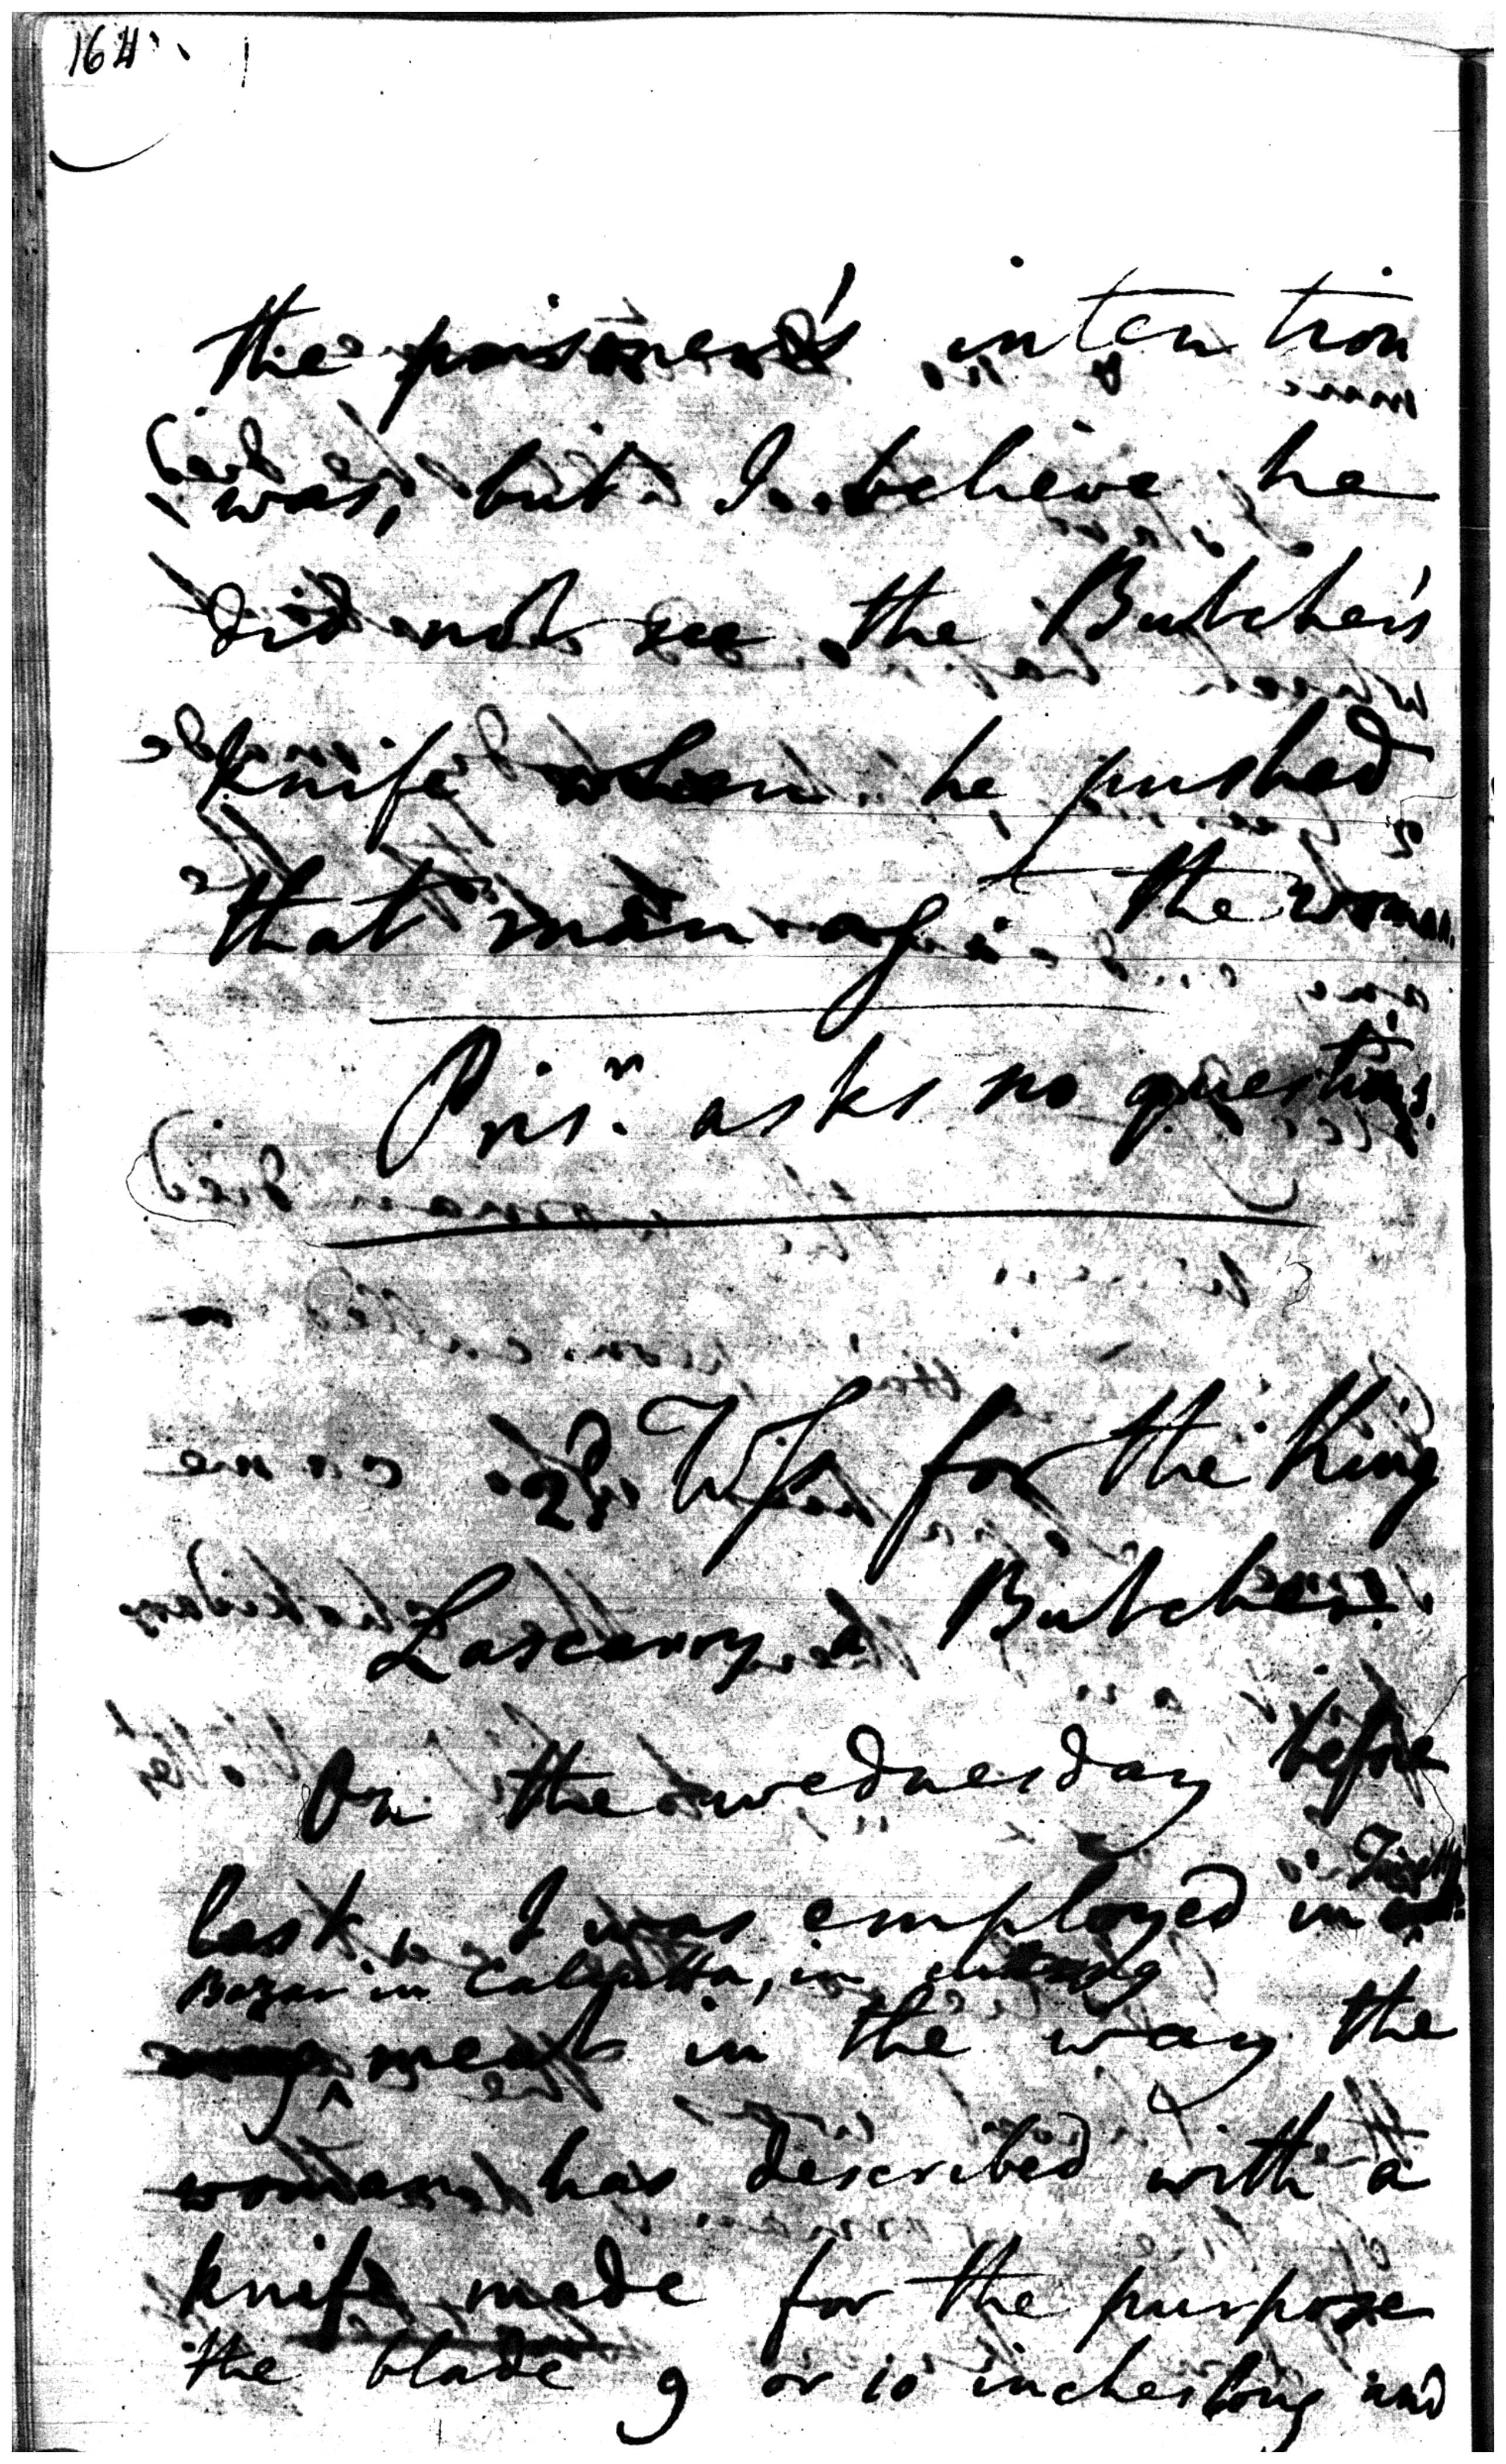 164
the prisoner's intention
was, but I believe he
did not see the Butcher's
knife when he pushed
that man agt the woman
Prisr. asks no questions.
2d Wits for the King
Lascarry a Butcher.
On the wednesday before
last, I was employed in
Bazar in Calcutta, in cutting
meat in the way the
woman has described with a
knife made for the purpose
the blade 9 or 10 inches long and